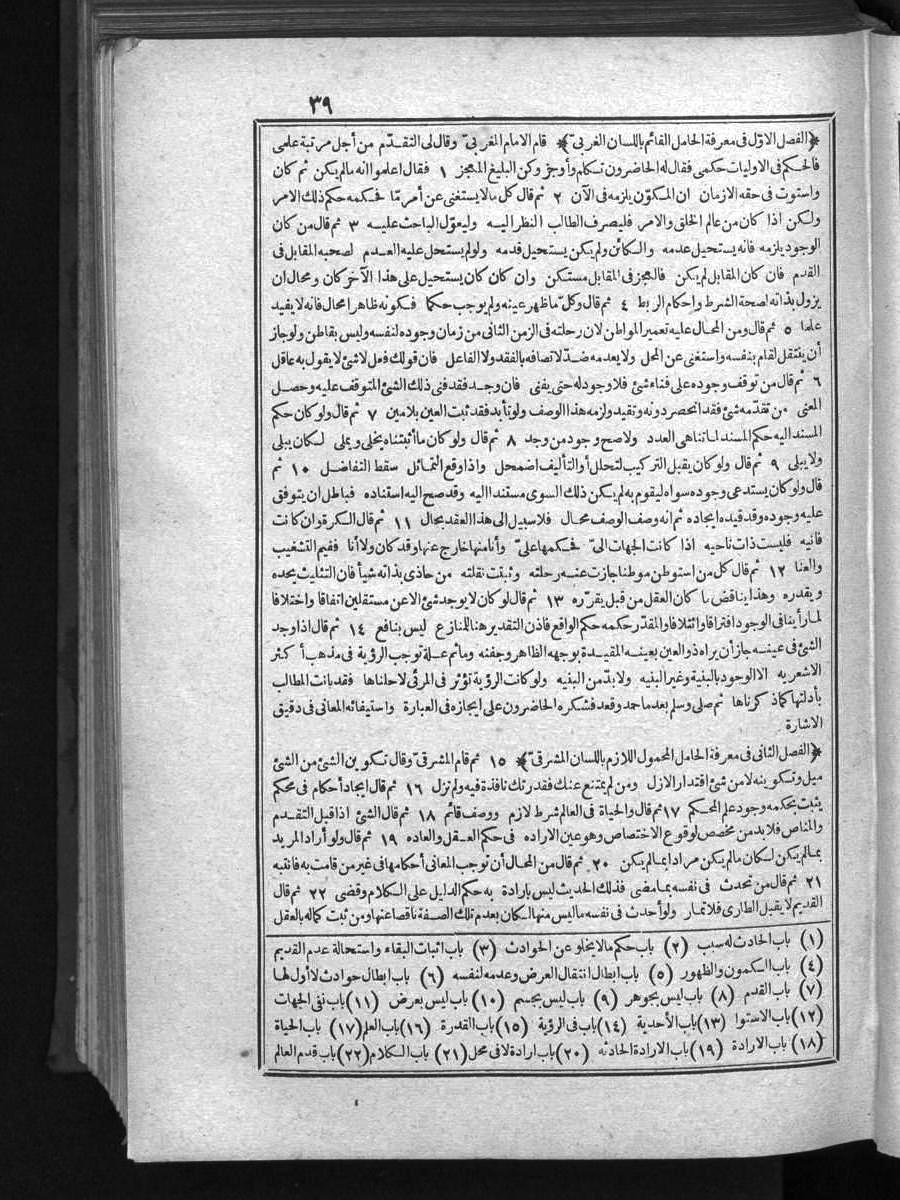 ٣٩
﴿الفصل الاوّل فى معرفة الحامل القائم باللسان الغربىّ﴾ قام الامام المغربىّ وقال لى التقدّم من أجل مرتبة علمى
فالحكم فى الاوليات حكمى فقال له الحاضرون تكلم وأوجز وكن البليغ المعجز ١ فقال اعلموا انه مالم يكن ثم كان
واستوت فى حقه الازمان ان المكوّن يلزمه فى الآن ٢ ثم قال كل ما لا يستغنى عن أمر مّا فحكمه حكم ذلك الامر
ولكن اذا كان من عالم الخلق والامر فليصرف الطالب النظر اليه وليعوّل الباحث عليه ٣ ثم قال من كان
الوجود يلزمه فانه يستحيل عدمه والكائن ولم يكن يستحيل قدمه ولو لم يستحل عليه العدم لصحبه المقابل فى
القدم فان كان المقابل لم يكن فالعجز فى المقابل مستكن وان كان كان يستحيل على هذا الآخر كان ومحال ان
يزول بذاته لصحة الشرط واحكام الربط ٤ ثم قال وكلّ ما ظهر عينه ولم يوجب حكما فكونه ظاهرا محال فانه لا يفيد
علما ٥ ثم قال ومن المحال عليه تعمير المواطن لان رحلته فى الزمن الثانى من زمان وجوده لنفسه وليس بقاطن ولو جاز
أن ينتقل لقام بنفسه واستغنى عن المحل ولا يعدمه ضدّ لاتصافه بالفقد ولا الفاعل فان قولك فعل لا شئ لا يقول به عاقل
٦ ثم قال من توقف وجوده على فناء شئ فلا وجود له حتى يفنى فان وجد فقد فنى ذلك الشئ المتوقف عليه وحصل
المعنى من تقدّمه شئ فقد انحصر دونه وتقيد ولزمه هذا الوصف ولو تأبد فقد ثبت العين بلا مين ٧ ثم قال ولو كان حكم
المسند اليه حكم المسند لما تناهى العدد ولا صح وجود من وجد ٨ ثم قال ولو كان ما أثبتناه يخلى ويملى لكان يبلى
ولا يبلى ٩ ثم قال ولو كان يقبل التركيب لتحلل أو التأليف اضمحل واذا وقع التماثل سقط التفاضل ١٠ ثم
قال ولو كان يستدعى وجوده سواه ليقوم به لم يكن ذلك السوى مستندا اليه وقد صح اليه استناده فباطل ان يتوقف
عليه وجوده وقد قيده ايجاده ثم انه وصف الوصف محال فلا سبيل الى هذا العقد بحال ١١ ثم قال الكرة وان كانت
فانيه فليست ذات ناحيه اذا كانت الجهات الىّ فحكمها علىّ وأنا منها خارج عنها وقد كان ولا أنا ففيم التشغيب
والعنا ١٢ ثم قال كل من استوطن موطنا جازت عنه رحلته وثبتت نقلته من حاذى بذاته شيأ فان التثليث يحده
ويقدره وهذا يناقض ما كان العقل من قبل يقرّره ١٣ ثم قال لو كان لا يوجد شئ الا عن مستقلين اتفاقا واختلافا
لما رأينا فى الوجود افتراقا وائتلافا والمقدّر حكمه حكم الواقع فاذن التقدير هنا للمنازع ليس بنافع ١٤ ثم قال اذا وجد
الشئ فى عينه جاز أن يراه ذو العين بعينه المقيدة بوجهه الظاهر وجفنه وما ثم علة توجب الرؤية فى مذهب أكثر
الاشعريه الا الوجود بالبنية وغير البنيه ولا بدّ من البنيه ولو كانت الرؤية تؤثر فى المرئى لاحلناها فقد بانت المطالب
بأدلتها كما ذكرناها ثم صلى وسلم بعد ما حمد وقعد فشكره الحاضرون على ايجازه فى العبارة واستيفائه المعانى فى دقيق
الاشارة
﴿الفصل الثانى فى معرفة الحامل المحمول اللازم باللسان المشرقىّ﴾ ١٥ ثم قام المشرقىّ وقال تكوين الشئ من الشئ
ميل وتكوينه لا من شئ اقتدار الازل ومن لم يمتنع عنك فقدرتك نافذة فيه ولم تزل ١٦ ثم قال ايجاد أحكام فى محكم
يثبت بحكمه وجود علم المحكم ١٧ ثم قال والحياة فى العالم شرط لازم ووصف قائم ١٨ ثم قال الشئ اذا قبل التقدم
والمناص فلا بد من مخصص لوقوع الاختصاص وهو عين الاراده فى حكم العقل والعاده ١٩ ثم قال ولو أراد المريد
بما لم يكن لكان ما لم يكن مرادا بما لم يكن ٢٠ ثم قال من المحال أن توجب المعانى أحكامها فى غير من قامت به فانتبه
٢١ ثم قال من تحدث فى نفسه بما مضى فذلك الحديث ليس بارادة به حكم الدليل على الكلام وقضى ٢٢ ثم قال
القديم لا يقبل الطارى فلا تمار ولو أحدث فى نفسه ما ليس منها لكان بعدم تلك الصفة ناقصا عنها ومن ثبت كماله بالعقل
(١) باب الحادث له سبب (٢) باب حكم ما لا يخلو عن الحوادث (٣) باب اثبات البقاء واستحالة عدم القديم
(٤) باب الكمون والظهور (٥) باب ابطال انتقال العرض وعدمه لنفسه (٦) باب ابطال حوادث لا أول لها
(٧) باب القدم (٨) باب ليس بجوهر (٩) باب ليس بجسم (١٠) باب ليس بعرض (١١) باب نفى الجهات
(١٢) باب الاستوا (١٣) باب الأحدية (١٤) باب فى الرؤية (١٥) باب القدرة (١٦) باب العلم (١٧) باب الحياة
(١٨) باب الارادة (١٩) باب الارادة الحادثه (٢٠) باب ارادة لا فى محل (٢١) باب الكلام (٢٢) باب قدم العالم